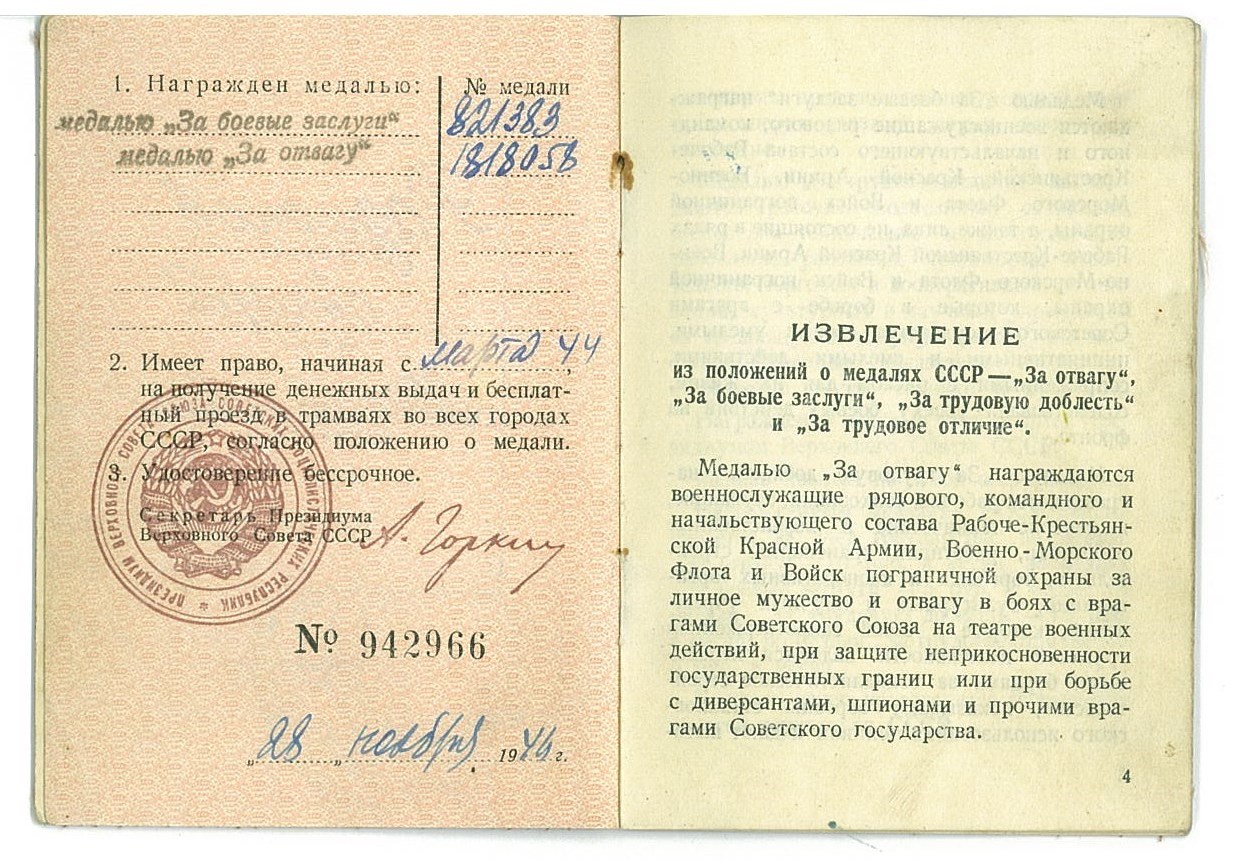 1. Награжден медалью:
№ медали
медалью „За боевые заслуги“
821383
медалью „За отвагу“
1818058
2. Имеет право, начиная с марта 44,
на получение денежных выдач и бесплат-
ный проезд в трамваях во всех городах
СССР, согласно положению о медали.
3. Удостоверение бессрочное.
Секретарь Президиума
Верховного Совета СССР
А. Горкин
ПРЕЗИДИУМ ВЕРХОВНОГО СОВЕТА СОЮЗА СОВЕТСКИХ СОЦИАЛИСТИЧЕСКИХ РЕСПУБЛИК
№ 942966
„28„ ноября 1946 г.
ИЗВЛЕЧЕНИЕ
из положений о медалях СССР—„За отвагу“,
„За боевые заслуги“, „За трудовую доблесть“
и „За трудовое отличие“.
Медалью „За отвагу“ награждаются
военнослужащие рядового, командного и
начальствующего состава Рабоче-Крестьян-
ской Красной Армии, Военно-Морского
Флота и Войск пограничной охраны за
личное мужество и отвагу в боях с вра-
гами Советского Союза на театре военных
действий, при защите неприкосновенности
государственных границ или при борьбе
с диверсантами, шпионами и прочими вра-
гами Советского государства.
4